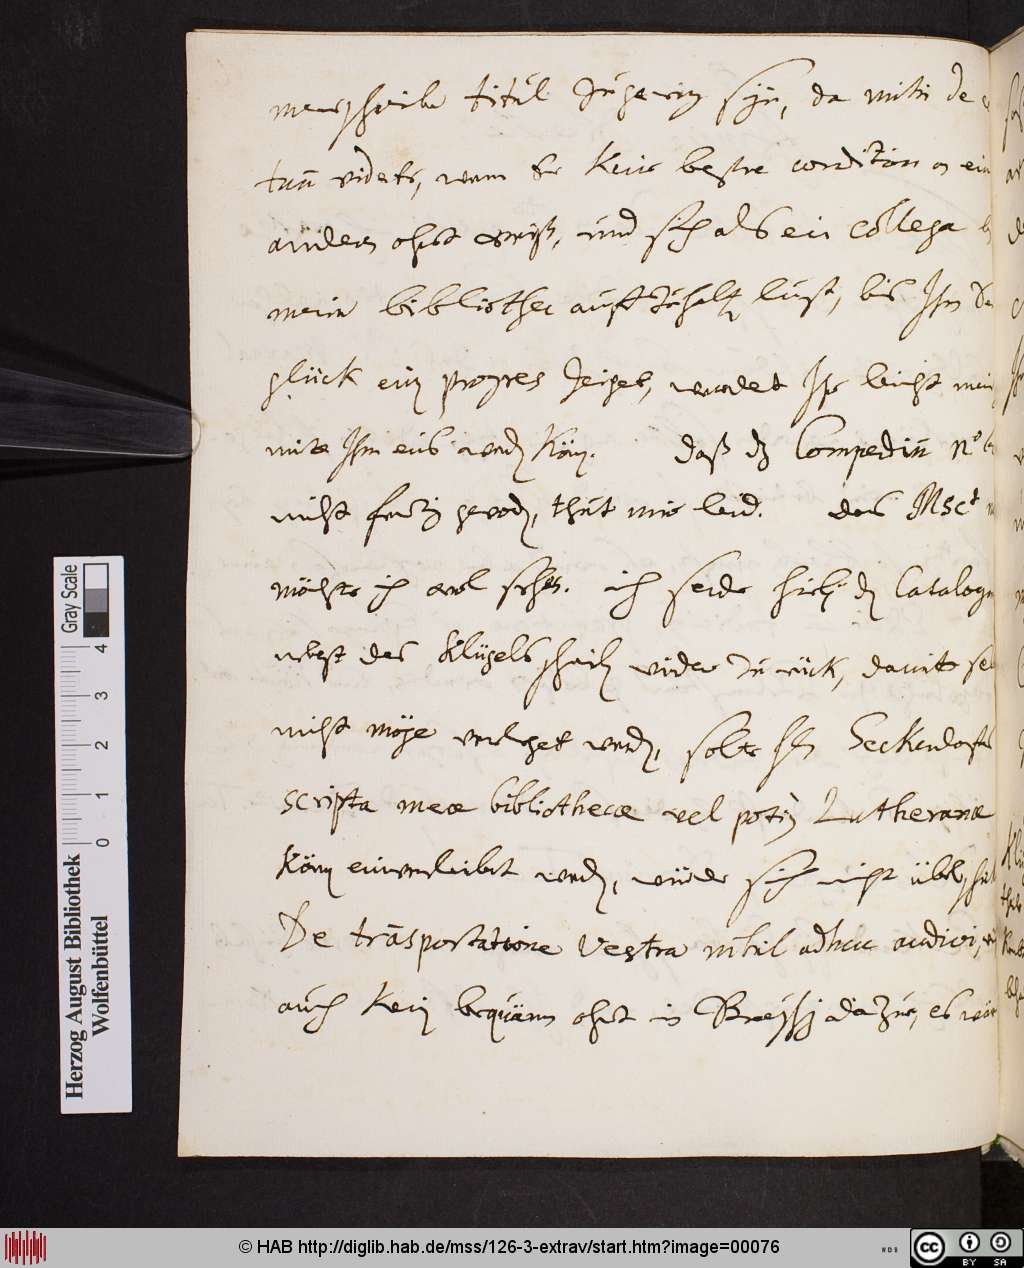 titul zugewin seyn, da mihi de
tum videtr, wenn Er keine bessre condition an ein
andern ohrt weiß, und sich als ein Collega
meiner bibliothec auffzuhalten lust, bis Ihm
glück ein progres zeiget, werdet Ihr leicht mein
mitt Ihm eins werden können. daß dz Compendiū No
nicht fertig geworden, thut mir leid. das Msct
möchte ich wol sehen. ich sende hiebey den Catalogum
nebst des Klügels schreiben wieder zurück, damitt
nicht möge verleget werden, solte Hn Seckendorffs
scripta meae bibliothecae vel potiq Lutheranae
können einverleibet werden, würde sich nicht übel
De trāsportatione Vestra nihil adhuc audivi,
auch kein bequäm ohrt in dazu, es wär
Gray Scale
4 3 2 1 0
Herzog August Bibliothek
Wolfenbüttel
© HAB http://diglib.hab.de/mss/126-3-extrav/start.htm?image=00076
WDB
cc BY SA